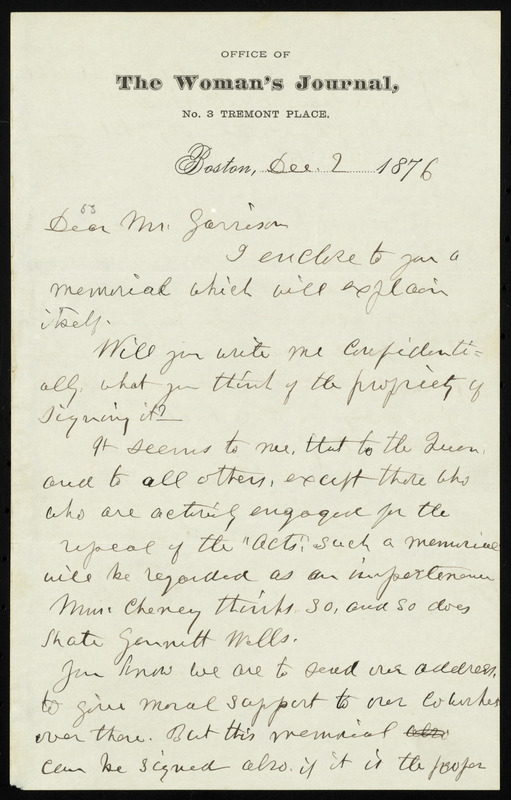 OFFICE OF
The Woman's Journal,
No. 3 TREMONT PLACE.
Boston, Dec. 2 1876
Dear Mr. Garrison
I enclose to you a
memorial which will explain
itself.
Will you write me confidenti-
ally, what you think of the propriety of
signing it?
It seems to me, that to the Queen,
and to all others, except those who
who are actively engaged for the
repeal of the "Acts", such a memorial
will be regarded as an impertinence
Mrs. Cheney thinks so, and so does
Kate Gannett Wells.
You know we are to send our address,
to give moral support to our coworkers
over there. But this memorial also
can be signed also. if it is the proper